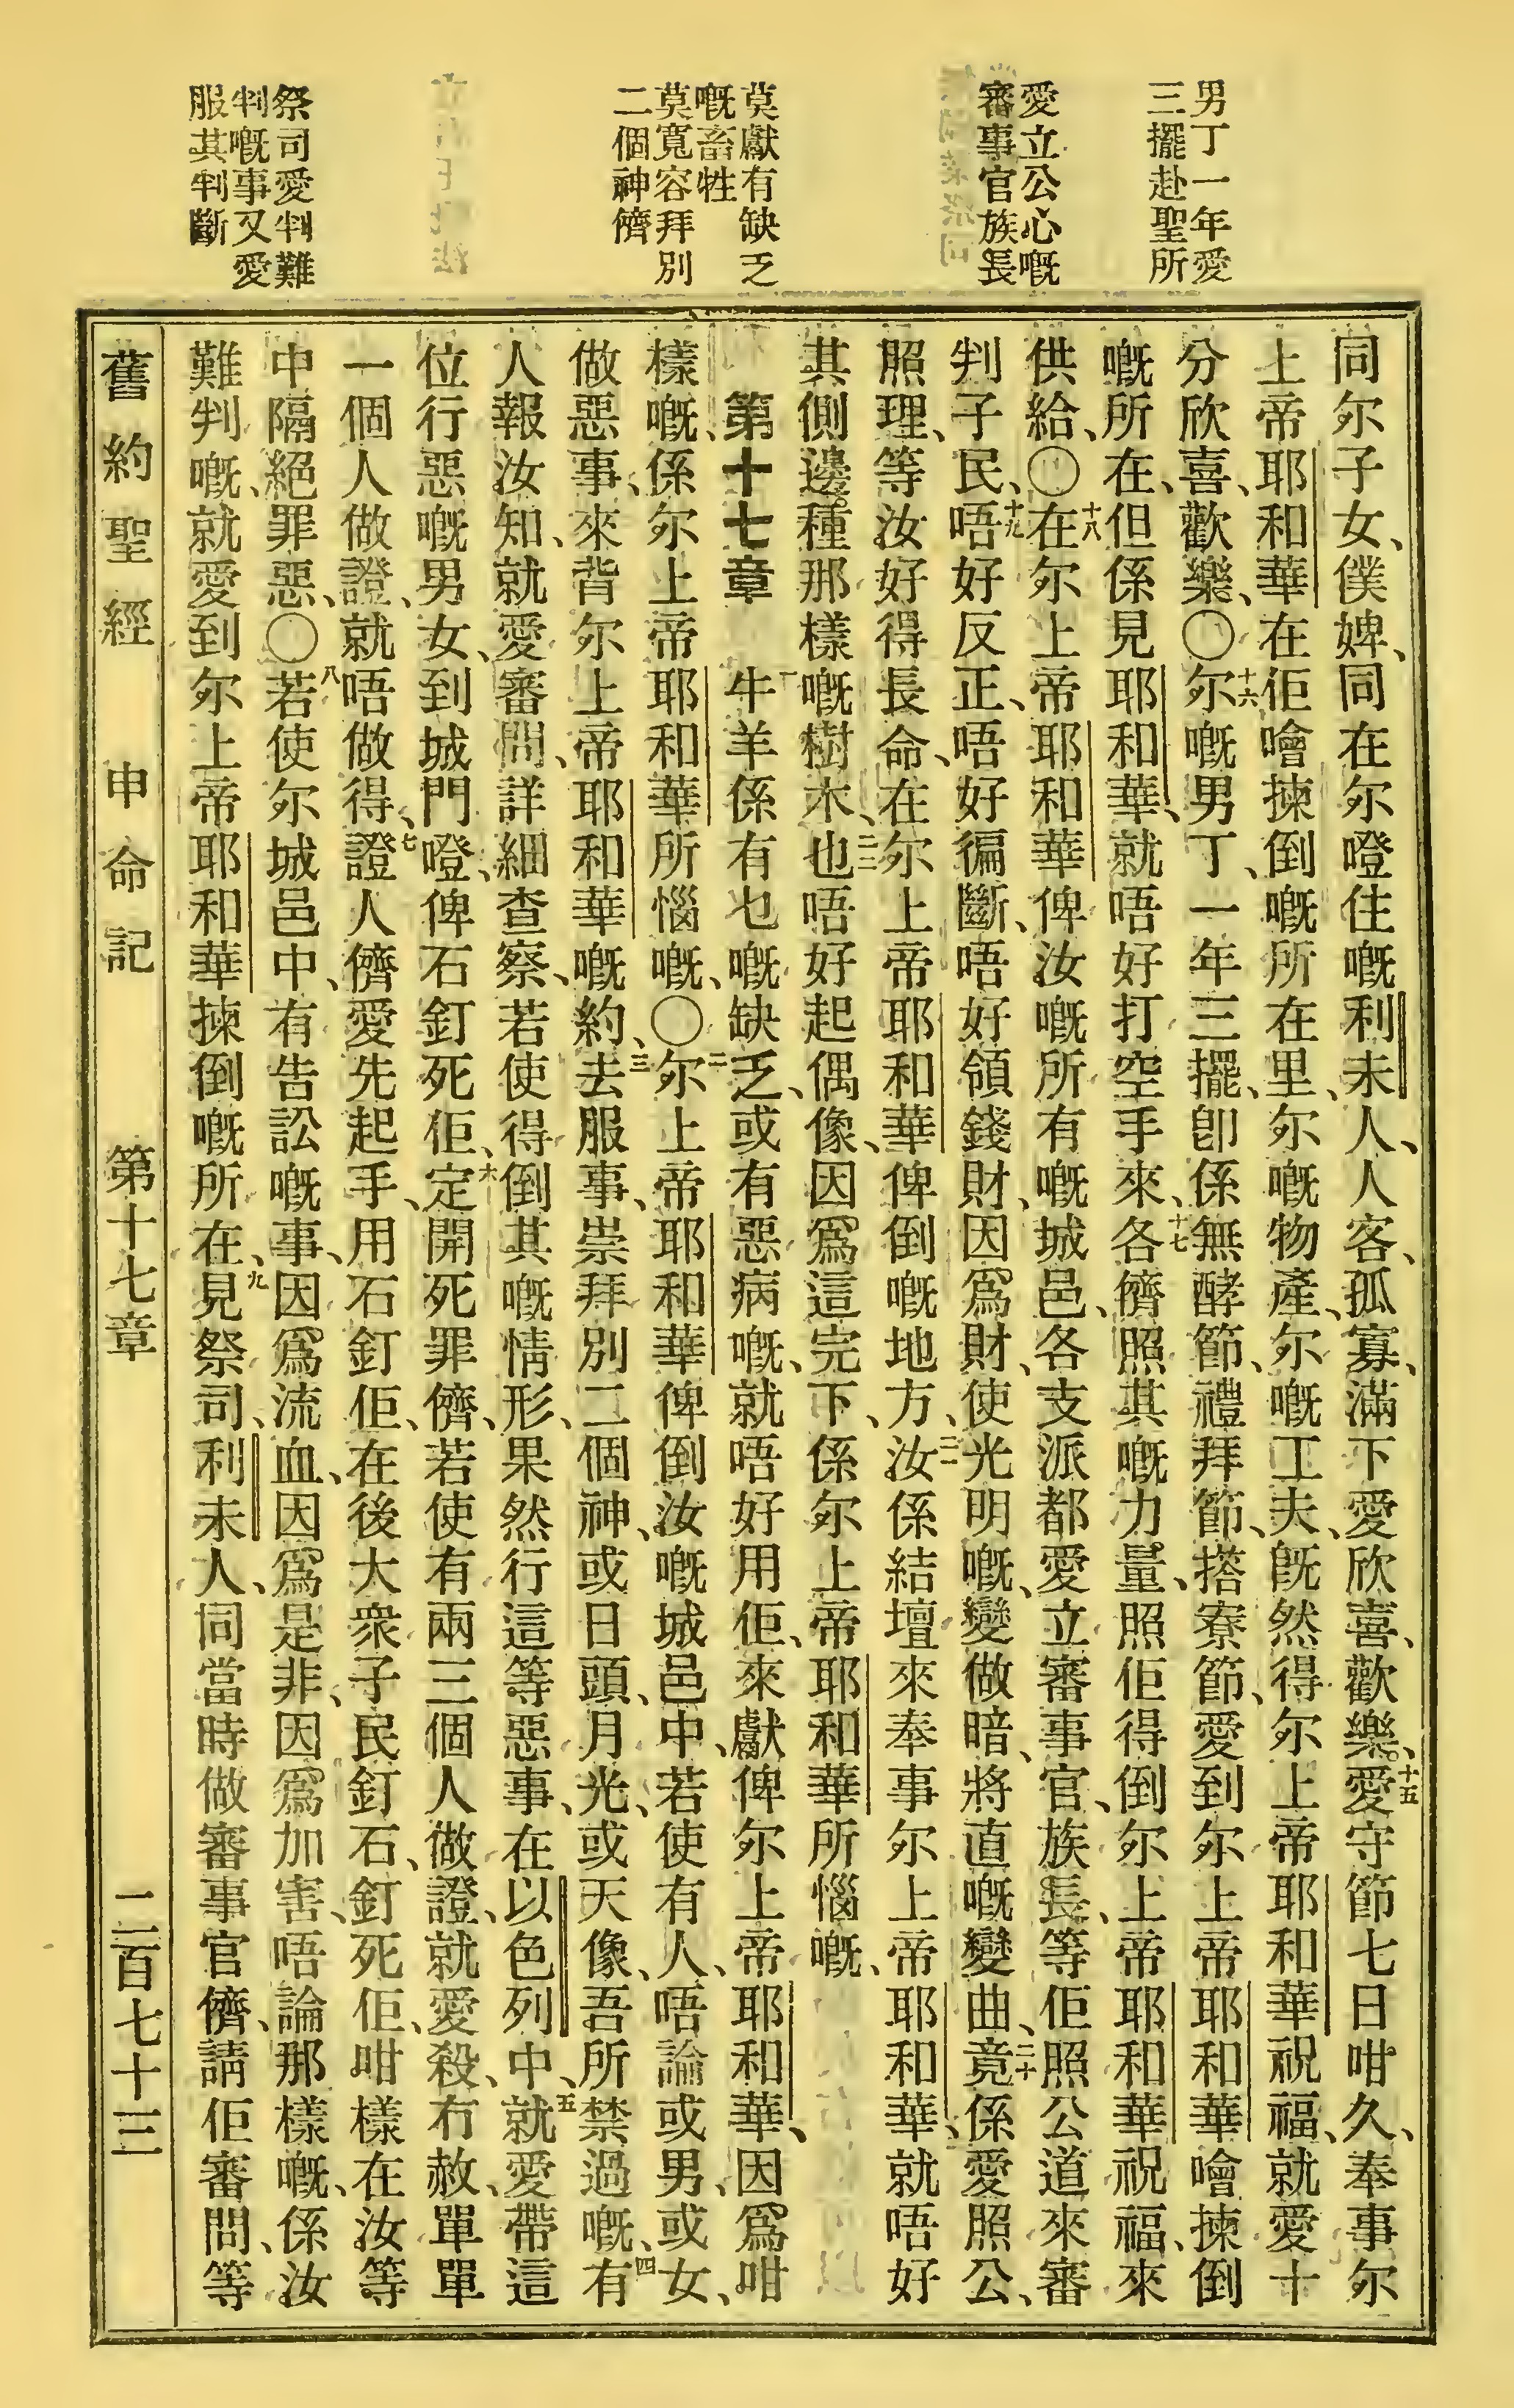 男丁一年愛
三擺赴聖所
愛立公心嘅
審事官族長
莫獻有缺乏
嘅畜牲
莫寬容拜別
二個神儕
祭司愛判難
判嘅事又愛
服其判斷
同尔子女、僕婢、同在尔嶝住嘅利未人、人客、孤寡、滿下愛欣喜、歡樂、十五愛守節七日咁久、奉事尔
上帝耶和華在佢噲揀倒嘅所在里、尔嘅物產、尔嘅工夫、旣然得尔上帝耶和華祝福、就愛十
分欣喜、歡樂、〇十六尔嘅男丁、一年三擺、卽係無酵節、禮拜節、搭寮節、愛到尔上帝耶和華噲揀倒
嘅所在、但係見耶和華、就唔好打空手來、十七各儕照其嘅力量、照佢得倒尔上帝耶和華祝福、來
供給、〇十八在尔上帝耶和華俾汝嘅所有嘅城邑、各支派都愛立審事官、族長、等佢照公道來審
判子民、十九唔好反正、唔好徧斷、唔好領錢財、因爲財、使光明嘅、變做暗、將直嘅變曲、二十竟係愛照公、
照理、等汝好得長命、在尔上帝耶和華俾倒嘅地方、二一汝係結壇來奉事尔上帝耶和華、就唔好
其側邊種那樣嘅樹木、二二也唔好起偶像、因爲這完下、係尔上帝耶和華所惱嘅、
第十七章　一牛羊係有乜嘅缺乏、或有惡病嘅、就唔好用佢、來獻俾尔上帝耶和華、因爲咁
樣嘅、係尔上帝耶和華所惱嘅、〇二尔上帝耶和華俾倒汝嘅城邑中、若使有人、唔論或男、或女、
做惡事、來背尔上帝耶和華嘅約、三去服事、崇拜別二個神、或日頭、月光、或天像、吾所禁過嘅、四有
人報汝知、就愛審問、詳細查察、若使得倒其嘅情形、果然行這等惡事、在以色列中、五就愛帶這
位行惡嘅男女、到城門嶝、俾石釘死佢、六定開死罪儕、若使有兩三個人做證、就愛殺、冇赦、單單
一個人做證、就唔做得、七證人儕愛先起手、用石釘佢、在後大衆子民釘石、釘死佢、咁樣在汝等
中隔絕罪惡、〇八若使尔城邑中、有告訟嘅事、因爲流血、因爲是非、因爲加害、唔論那樣嘅、係汝
難判嘅、就愛到尔上帝耶和華揀倒嘅所在、九見祭司、利未人、同當時做審事官儕、請佢審問、等
舊約聖經　申命記　第十七章　二百七十三